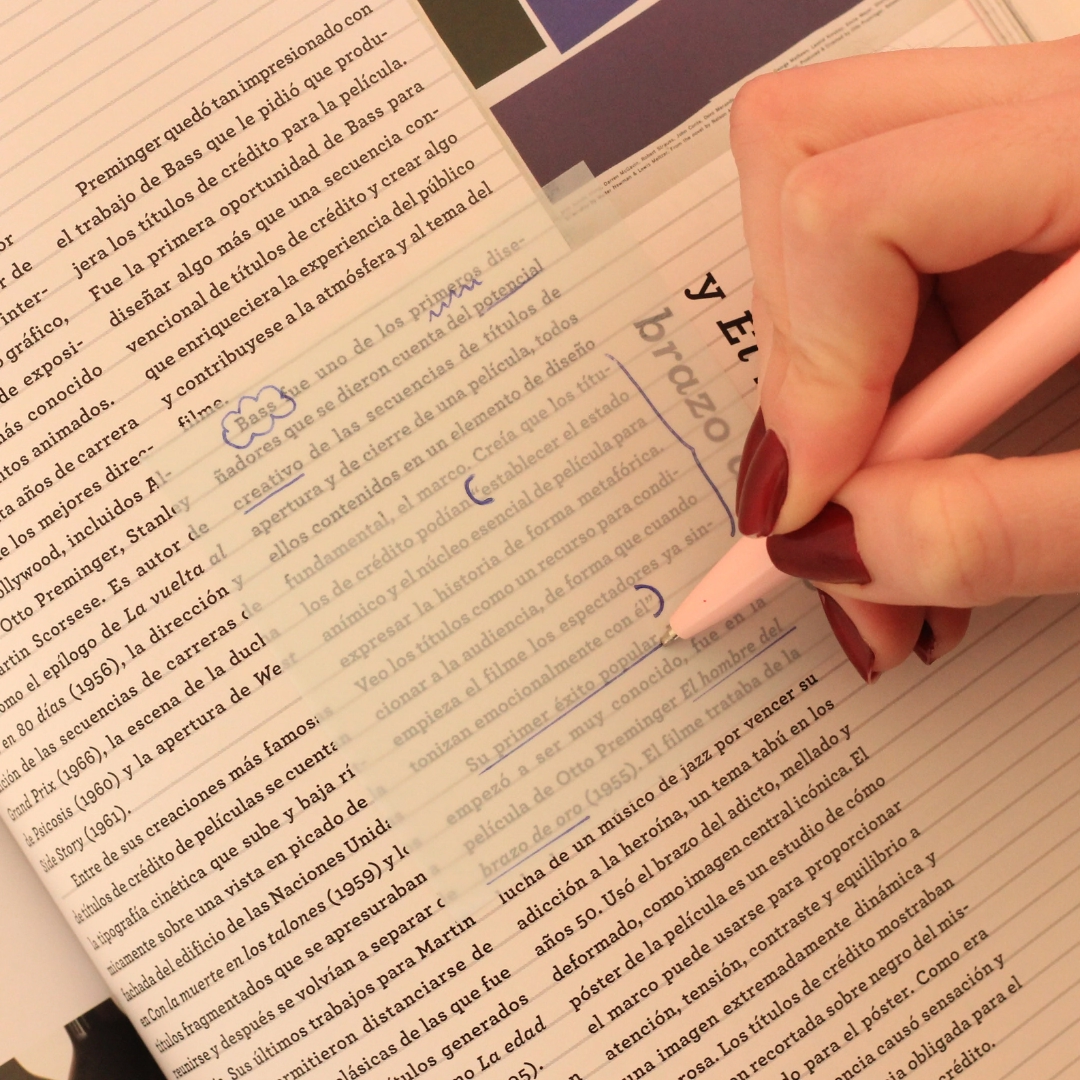 or
r de
inter-
gráfico,
de exposi-
más conocido
tos animados.
ta años de carrera
e los mejores direc-
ollywood, incluidos Al-
Otto Preminger, Stanley
artin Scorsese. Es autor de
omo el epílogo de La vuelta al
en 80 días (1956), la dirección y
ción de las secuencias de carreras de
Grand Prix (1966), la escena de la ducha
de Psicosis (1960) y la apertura de West
Side Story (1961).
Entre de sus creaciones más famosas
de títulos de crédito de películas se cuenta
la tipografía cinética que sube y baja rí
micamente sobre una vista en picado de
fachada del edificio de las Naciones Unida
en Con la muerte en los talones (1959) y lo
títulos fragmentados que se apresuraban
reunirse y después se volvían a separar
Sus últimos trabajos para Martin
rmitieron distanciarse de
lásicas de las que fue
ítulos generados
mo La edad
Preminger quedó tan impresionado con
el trabajo de Bass que le pidió que produ-
jera los títulos de crédito para la película.
Fue la primera oportunidad de Bass para
diseñar algo más que una secuencia con-
vencional de títulos de crédito y crear algo
que enriqueciera la experiencia del público
y contribuyese a la atmósfera y al tema del
filme.
Bass fue uno de los primeros dise-
ñadores que se dieron cuenta del potencial
creativo de las secuencias de títulos de
apertura y de cierre de una película, todos
ellos contenidos en un elemento de diseño
fundamental, el marco. Creía que los títu-
los de crédito podían "establecer el estado
anímico y el núcleo esencial de película para
expresar la historia de forma metafórica.
Veo los títulos como un recurso para condi-
cionar a la audiencia, de forma que cuando
empieza el filme los espectadores ya sin-
tonizan emocionalmente con él".
Su primer éxito popular,
empezó a ser muy conocido, fue en la
película de Otto Preminger El hombre del
brazo de oro (1955). El filme trataba de la
lucha de un músico de jazz por vencer su
adicción a la heroína, un tema tabú en los
años 50. Usó el brazo del adicto, mellado y
deformado, como imagen central icónica. El
póster de la película es un estudio de cómo
el marco puede usarse para proporcionar
atención, tensión, contraste y equilibrio a
una imagen extremadamente dinámica y
rosa. Los títulos de crédito mostraban
en recortada sobre negro del mis-
do para el póster. Como era
ncia causó sensación y
ia obligada para el
crédito.
y El
brazo